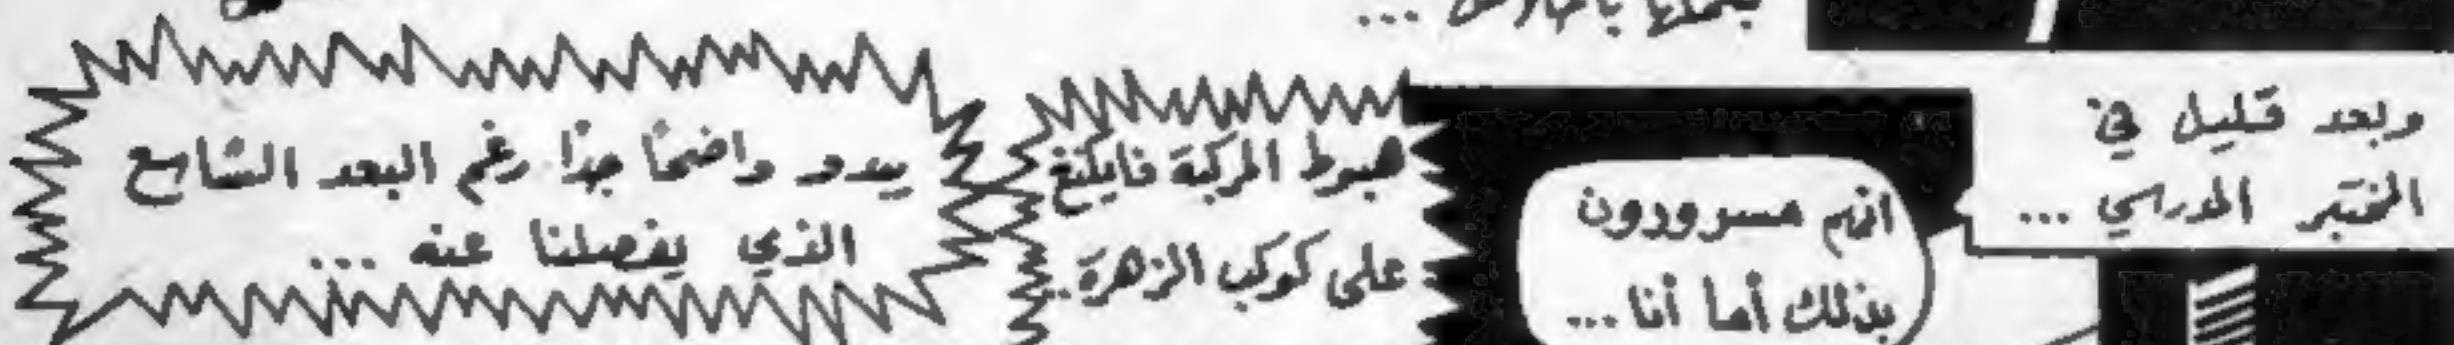 وبعد قليل في
المختبر المدرسي ...
انهم مسرورون
بذلك أما أنا ...
هبوط المركبة فايكنغ
على كوكب الزهرة ..
يبدو واضحًا جدًا رغم البعد الشاسع
الذي يفصلنا عنه ...